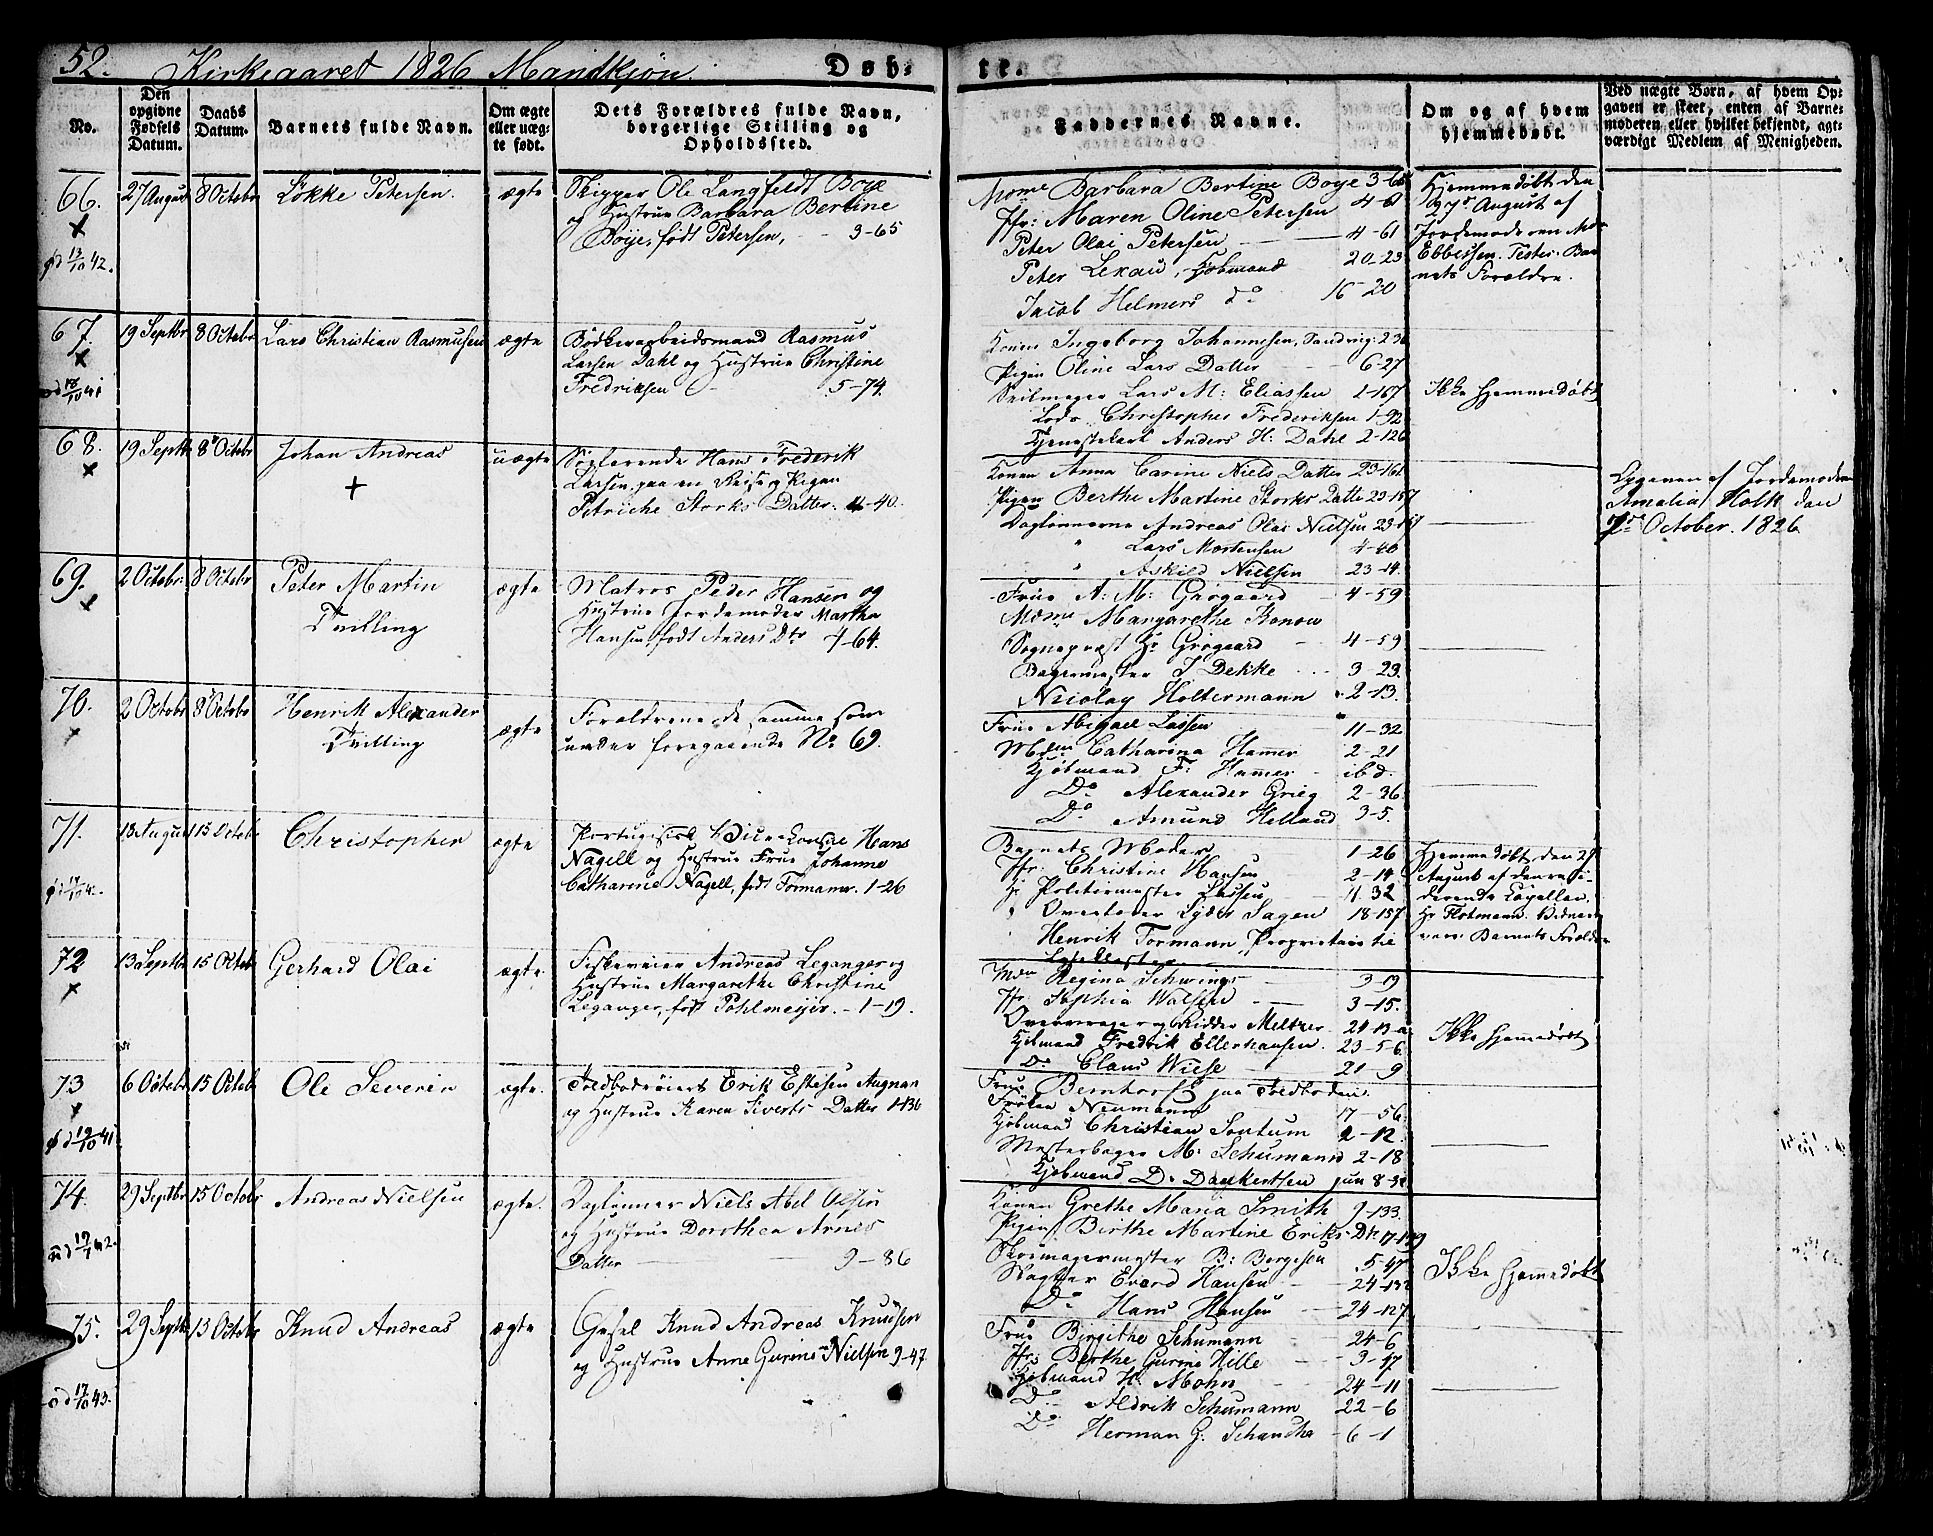 52. Kirkeaaret 1826 Mandkjøn.
Døb-
te.
No.
Den opgivne Fødsels Datum.
Daabs Datum.
Barnets fulde Navn.
Om ægte eller uægte født.
Dets Forældres fulde Navn, borgerlige Stilling og Opholdssted.
Faddernes Navne.
Om og af hvem hjemmedøbt.
Ved uægte Børn, af hvem Opgaven er skeet, enten af Barnemoderen eller hvilket bekjendt, agtværdigt Medlem af Menigheden.
66. 27 August 8 Octobr Løkke Petersen. ægte
Skipper Ole Langfeldt Boye
og Hustrue Barbara Bertine
Boye, født Petersen, 3-65
Barbara Bertine Boye 3-65
Jfr: Maren Oline Petersen 4-61
Peter Olai Petersen 4-61
Peter Lexau, Kjøbmand 20-23
Jacob Helmers do 16-20
Hjemmedøbt den
27de August af
Jordemoderen
Ebbesen. Testes. Bar-
nets Forældre.
67. 19 Septbr 8 Octobr Lars Christian Rasmusen ægte
Bødkerarbeidsmand Rasmus
Larsen Dahl og Hustrue Christine
Fredriksen 5-74.
Konen Ingeborg Johannesen, Sandvig: 23
Pigen Oline Lars Datter 6-27
Seilmager Lars M: Eliassen 1-167
Lods Christopher Frederiksen 1-92
Tjenestekarl Anders H: Dahl 2-126
Ikke hjemmedøbt
68. 19 Septbr 8 Octobr Johan Andreas uægte
Søefarende Hans Frederik
Larsen, paa en Reise, og Pigen
Petriche Storks Datter. 4-40.
Konen Anna Carine Niels Datter 23-161
Pigen Berthe Martine Storks Datter 23-157
Dagleierne Andreas Olai Nielsen 23-151
" Lars Mortensen 4-40
" Askild Nielsen 23-14.
Opgiven af Jordemoderen
Amalia Holk den
7de October. 1826
69. 2 Octobr. 8 Octobr Peter Martin ægte
Tvilling
Matros Peder Hansen og
Hustrue Jordemoder Martha
Hansen, født Anders Dtr 4-64.
Frue A: M: Grøgaard 4-59
Mdme Margarethe Konow
Sognepræst Hr Grøgaard 4-59
Bagermester J Dekke 3-23.
Nicolay Holtermann 2-13.
70. 2 Octobr 8 Octobr Henrik Alexander ægte
Tvilling
Forældrene de samme som
under foregaaende No 69.
Frue Abigael Lassen 11-32
Mdme Catharina Hamer 2-21
Kjøbmand F: Hamer ibd.
Do Alexander Grieg 2-36.
Do Amund Helland 3-5.
71. 13 August 15 Octobr Christopher ægte
Portugisisk Vice Consul Hans
Nagell og Hustrue Frue Johanne
Catharine Nagell, født Formann. 1-26
Barnets Moder 1-26
Jfr. Christine Hansen 2-14
Hr Politiemester Lassen 11.32
Overlærer Lyder Sagen 18-157
Henrik Formann, Proprietair til
Lysekloster
Hjemmedøbt den 27
August af den resi-
derende Capellan
Hr Flotmann. Vidner
vare Barnets Forældre
72 13 Septbr. 15 Octobr Gerhard Olai ægte.
Fiskereier Andreas Leganger og
Hustrue Margarethe Christine
Leganger, født Pohlmeyer. 1-19.
Mdme Regina Schwings 3-19
Jfr. Sophia Walsøe 3-15.
Overvrager og Ridder Meltzer 24-13-a
Kjøbmand Fredrik Ellerhausen. 23-56
Do Claus Wiese 21-9
Ikke hjemmedøbt
73 6 Octobr. 15 Octobr Ole Severin ægte.
Toldbodroier Erik Estesen Augnar
og Hustrue Karen Siverts Datter 1-136
Frue Bernhoft paa Toldboden.
Frøken Neumann 17-56.
Kjøbmand Christian Sontum 2-12.
Mesterbager M: Schumann 2-18
Kjøbmand D. Dankertsen jun 8-32
74. 29 Septbr 15 Octobr Andreas Nielsen ægte.
Dagleinner Niels Abel Olsen
og Hustrue Dorothea Arnes
Datter 9-86
Konen Grethe Maria Smith 9-133.
Pigen Berthe Martine Eriks Dtr 17-149
Skomagermester B: Børgesen 5-47
Slagter Evard Hansen 24-132
Do Hans Hansen 24-127
Ikke hjemmedøbt
75. 29 Septbr. 15 Octobr Knud Andreas ægte
Gesel Knud Andreas Knudsen
og Hustrue Anne Gurine Nielsen 9-47
Frue Birgithe Schumann 24-6
Jfr. Berthe Gurine Hille 3-17
Kjøbmand H: Mohn 24-11
Do Aldrik Schumann 22-6
Do Herman G. Schanche 6-1